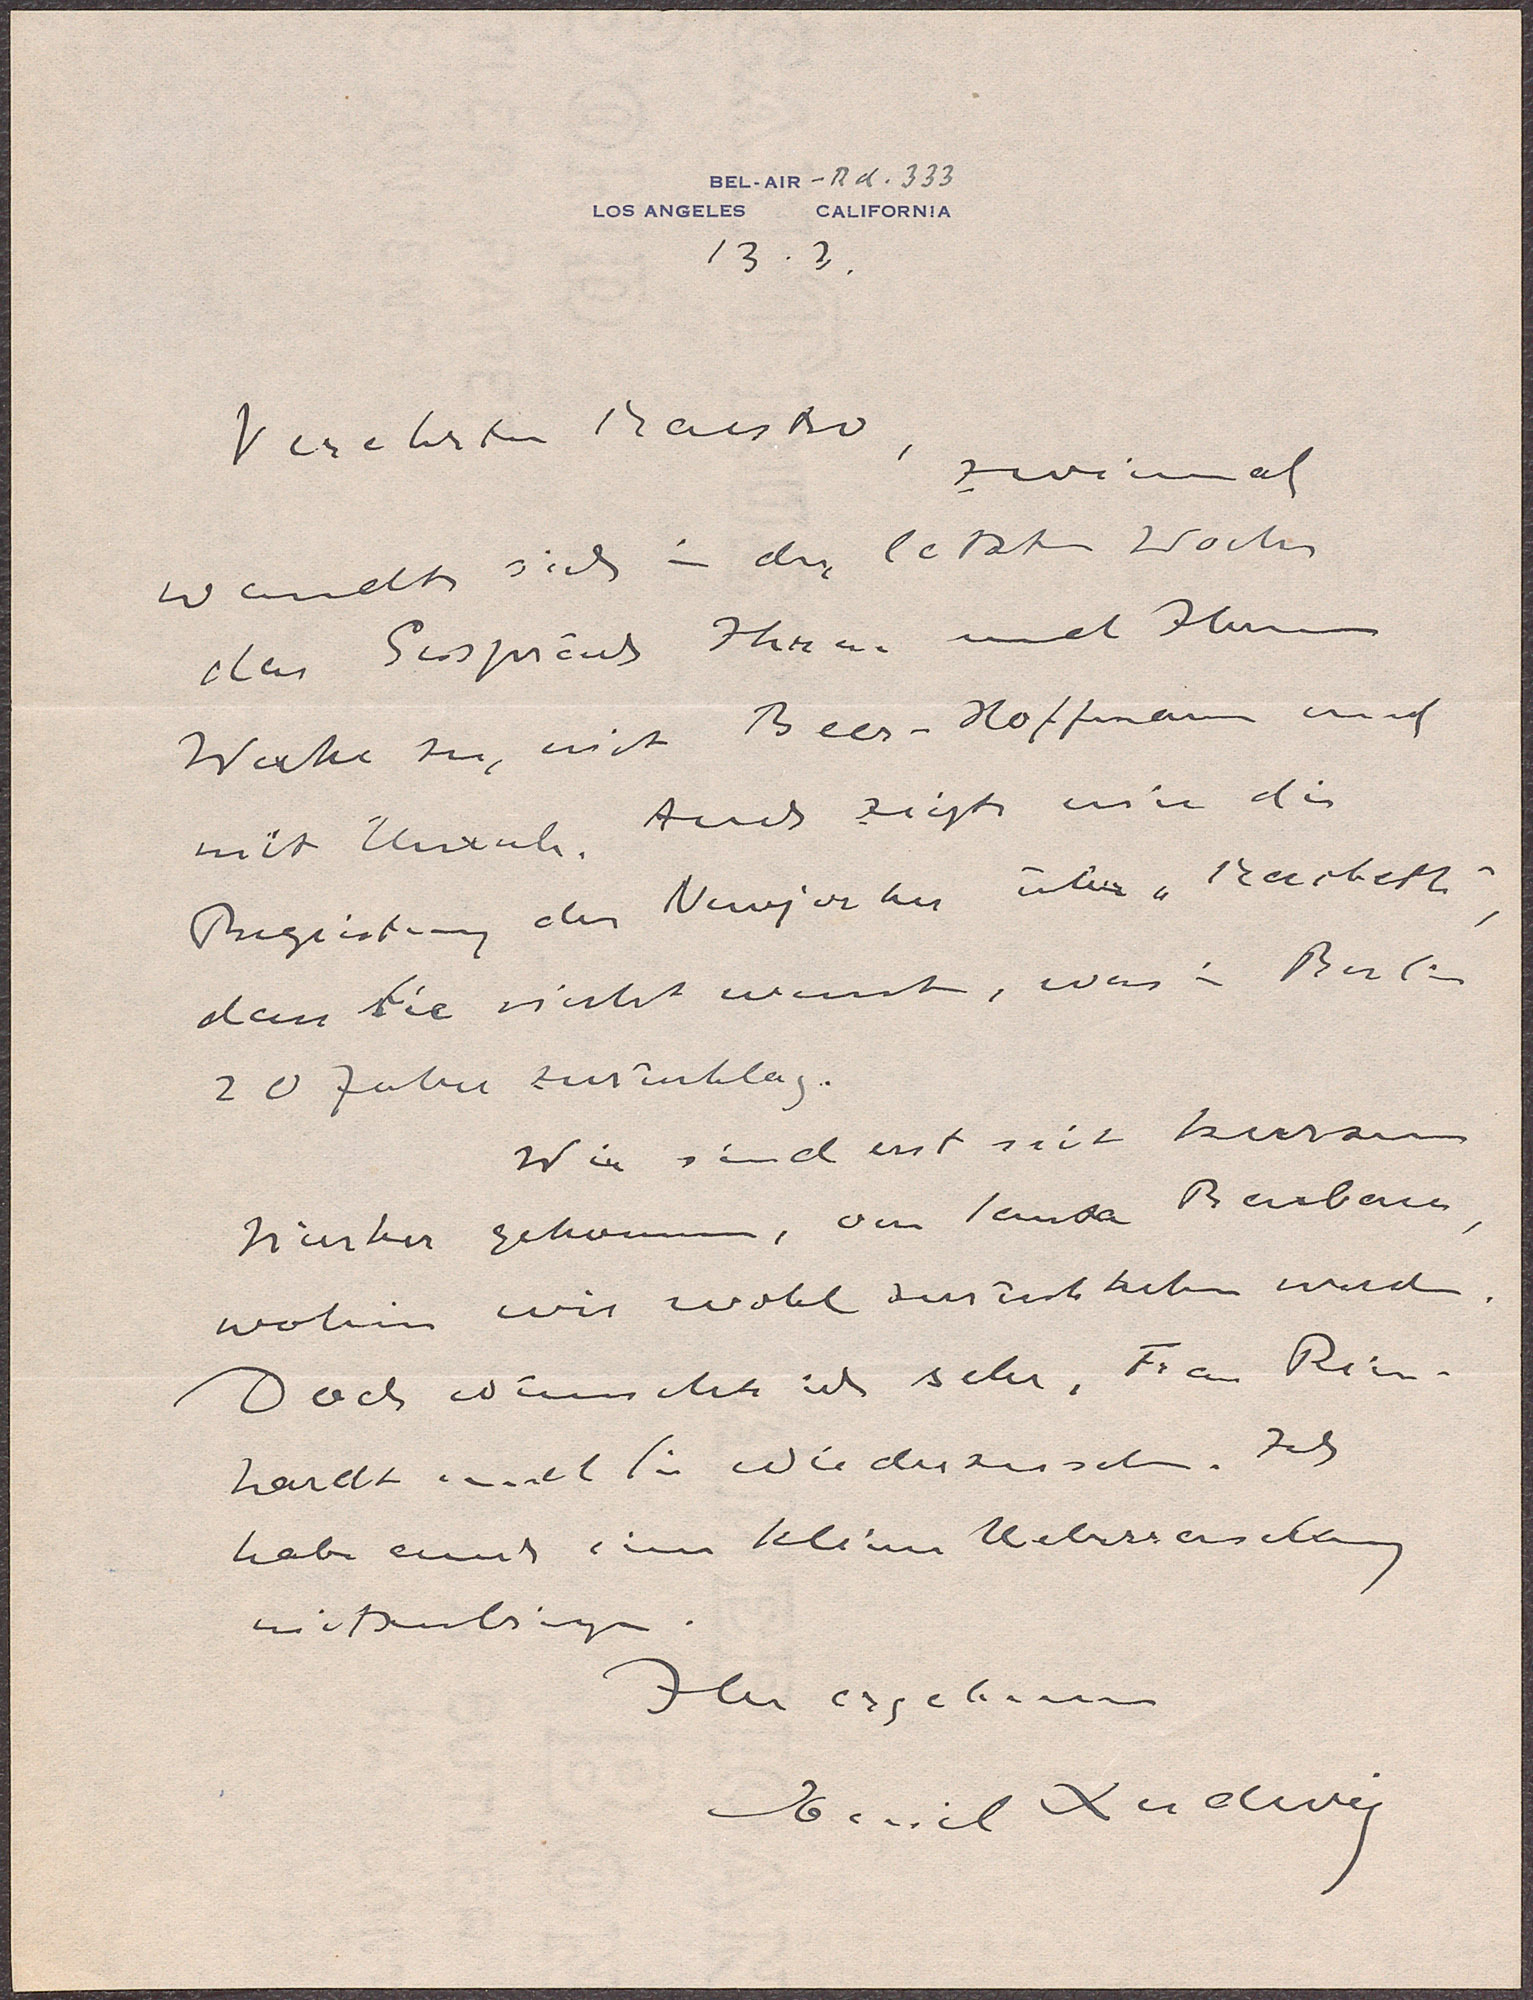 BEL-AIR -Rd. 333
LOS ANGELES CALIFORNIA
13. 2.
Verehrter Maestro,
zweimal
wandte sich in der letzten Woche
das Gespräch Ihnen und Ihrem
Werke zu, mit Beer-Hofmann und
mit Unruh. Auch zeigte mir die
Begeisterung der Newyorker über „Macbeth",
dass sie nicht wussten, was in Berlin
20 Jahre zurücklag.
Wir sind erst seit kurzem
hierher gekommen, von Santa Barbara,
wohin wir wohl zurückkehren werden.
Doch wünschte ich sehr, Frau Rein-
hardt und Sie wiederzusehen. Ich
habe auch eine kleine Ueberraschung
mitzubringen.
Ihr ergebener
Emil Ludwig